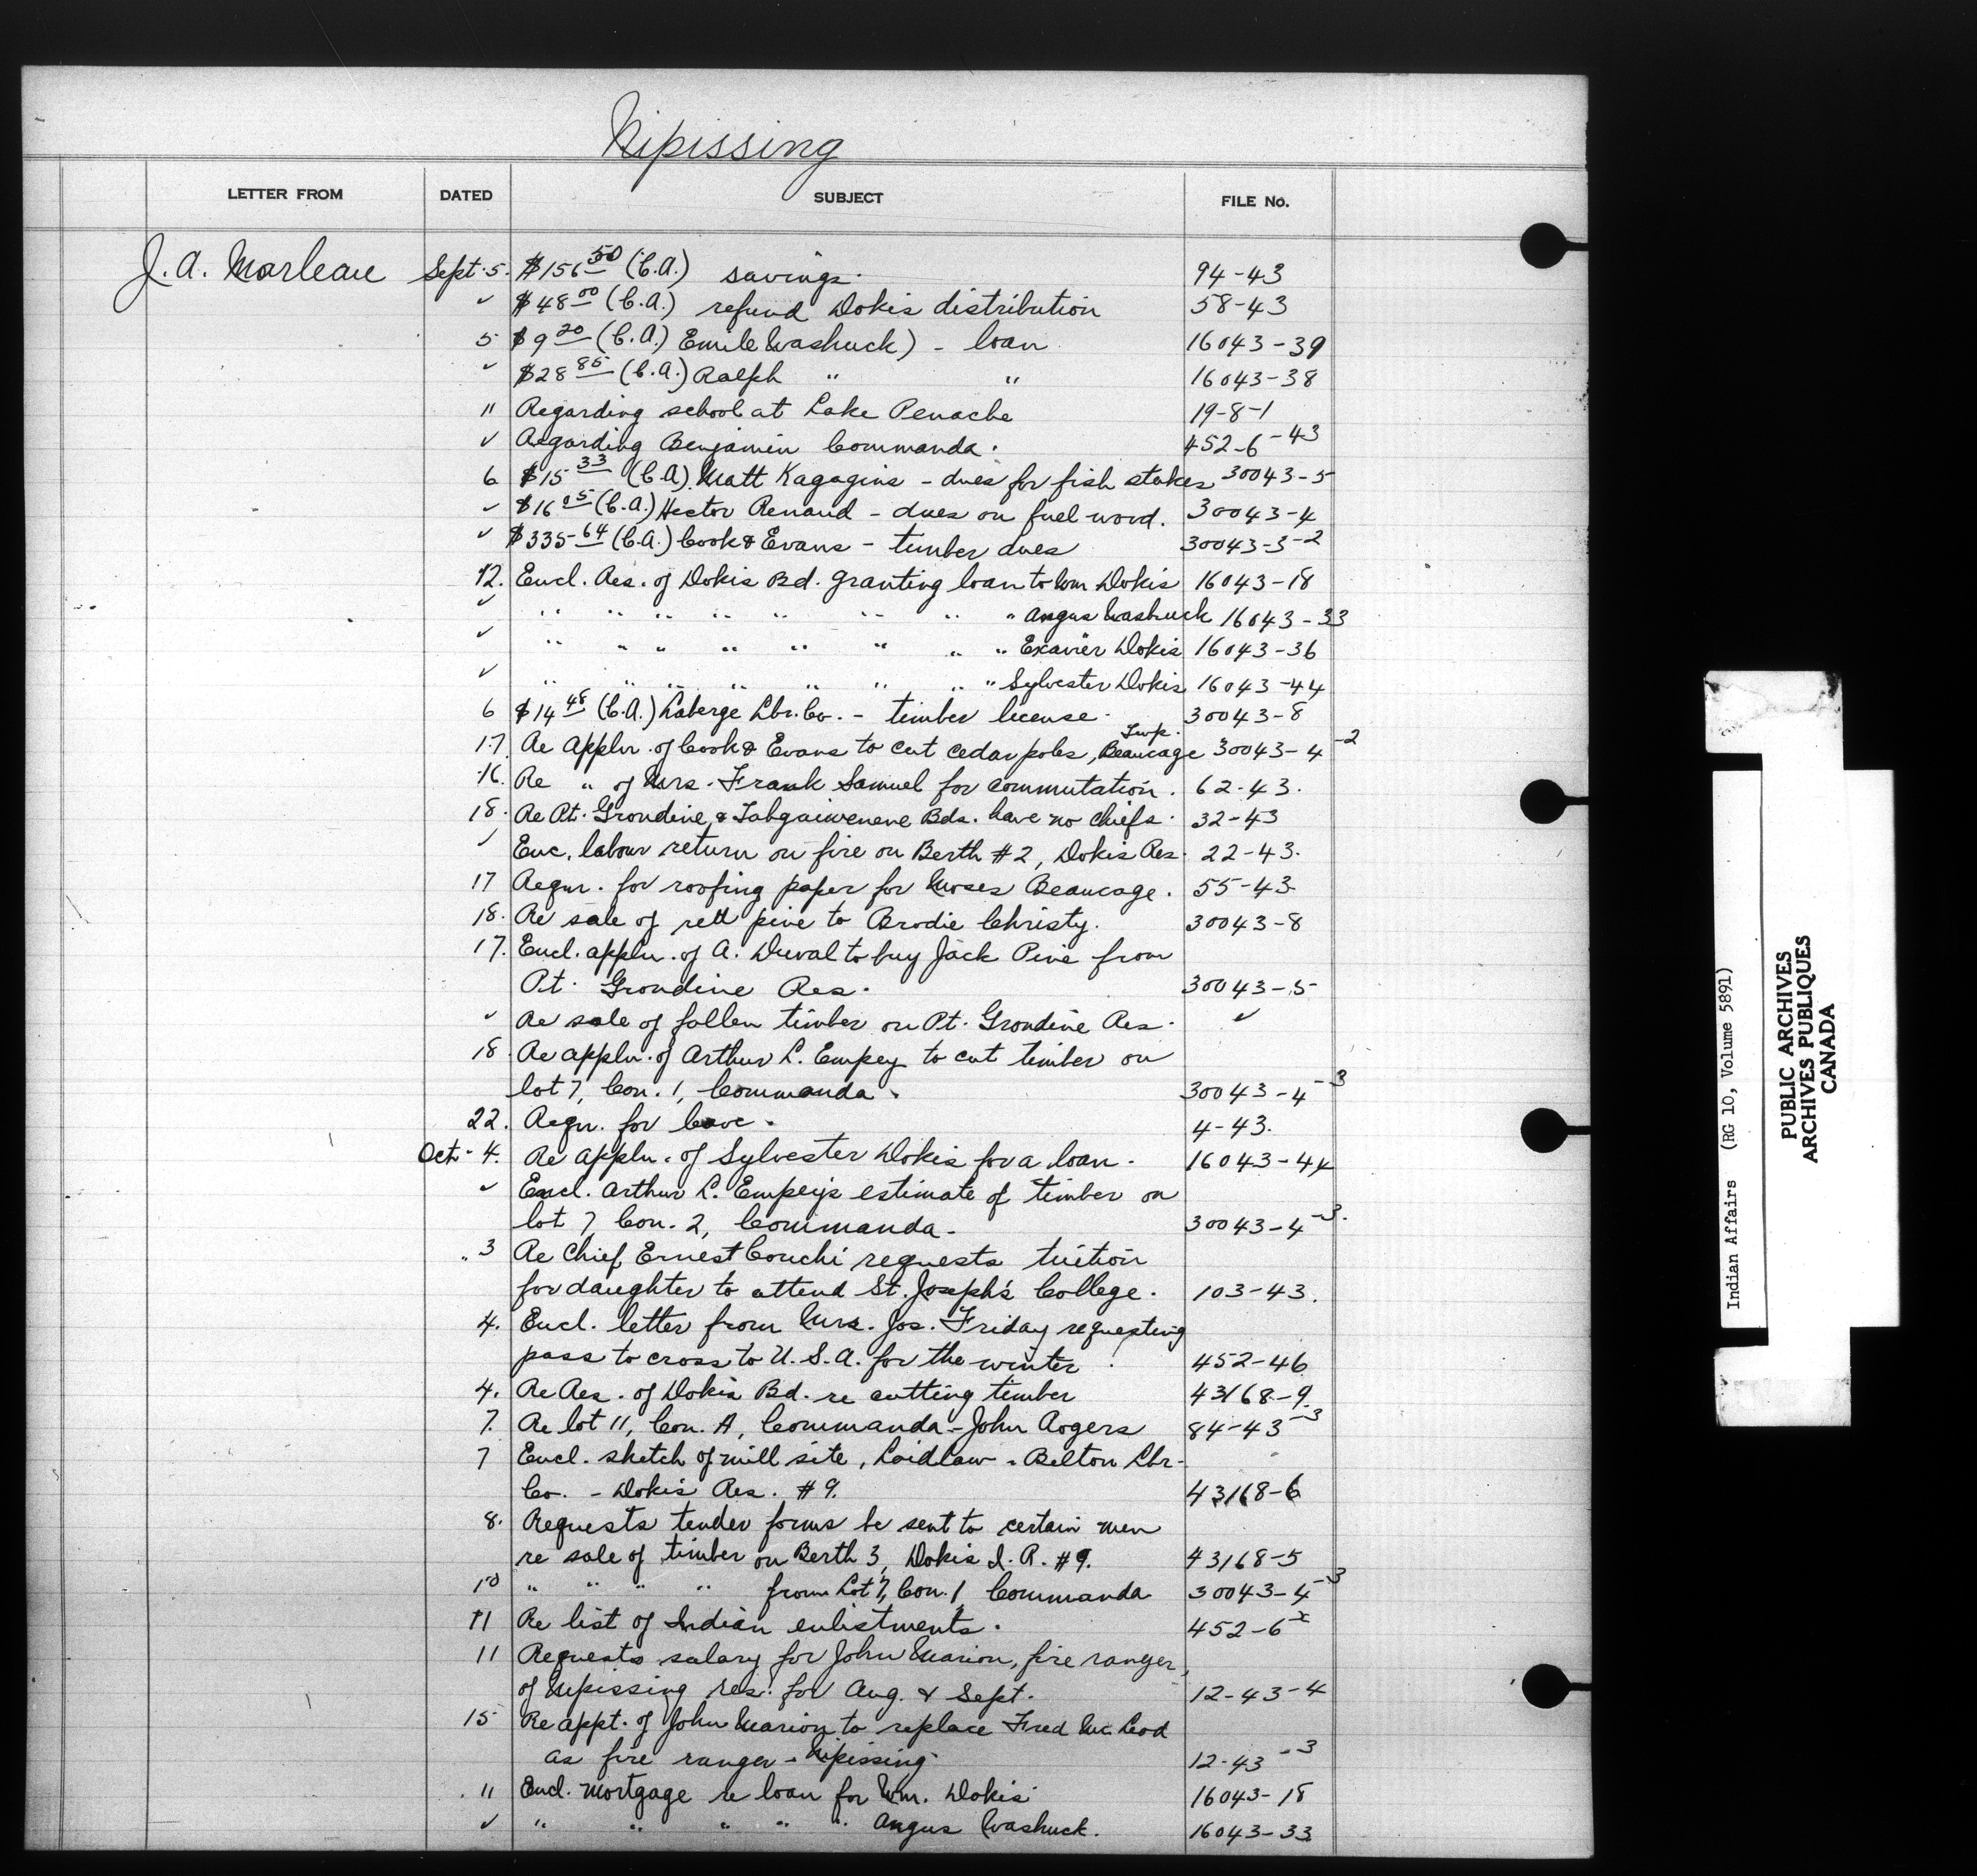 Nipissing
LETTER FROM DATED SUBJECT FILE No.
J. A. Marleau Sept. 5. $156 50 (C.A.) savings. 94-43
✓ $48 00 (C.A.) refund Dokis distribution 58-43
5 $9 20 (C.A.) Emile Washuck) - loan 16043-39
✓ $28 85 (C.A.) Ralph " " 16043-38
11 Regarding school at Lake Penache 19-8-1
✓ Regarding Benjamin Commanda. 452-6-43
6 $15 33 (C.A.) Matt Kagagins - dues for fish stakes 30043-5
✓ $16 05 (C.A.) Hector Renaud - dues on fuel wood. 30043-4
✓ $335 64 (C.A.) Cook & Evans - timber dues 30043-3-2
12. Encl. Res. of Dokis Bd. granting loan to Wm Dokis 16043-18
✓ " " " " " " " " Angus Washuck 16043-33
✓ " " " " " " " " Exavier Dokis 16043-36
✓ " " " " " " " " Sylvester Dokis 16043-44
6 $14 48 (C.A.) Laberge Lbr. Co. - timber license. 30043-8
17 Re applн. of Cook & Evans to cut cedar poles, Beaucage Twp. 30043-4-2
16. Re " of Mrs. Frank Samuel for commutation. 62-43.
18. Re Pt. Grondine & Tahgaiwenene Bds. have no chiefs. 32-43
✓ Enc. labour return on fire on Berth #2, Dokis Res. 22-43.
17 Requr. for roofing paper for Moses Beaucage. 55-43
18. Re sale of red pine to Brodie Christy. 30043-8
17. Encl. appln. of A. Duval to buy Jack Pine from
Pt. Grondine Res. 30043-5
✓ Re sale of fallen timber on Pt. Grondine Res. ✓
18. Re appln. of Arthur L. Empey to cut timber on
lot 7, Con. 1, Commanda. 30043-4-3
22. Requ. for leave. 4-43.
Oct. 4. Re appln. of Sylvester Dokis for a loan. 16043-44
✓ Encl. Arthur L. Empey's estimate of timber on
lot 7 Con. 2, Commanda. 30043-4-3.
3 Re Chief Ernest Couchi requests tuition
for daughter to attend St. Joseph's College. 103-43.
4. Encl. letter from Mrs. Jos. Friday requesting
pass to cross to U.S.A. for the winter. 452-46
4. Re Res. of Dokis Bd. re cutting timber 43168-9
7. Re lot 11, Con. A, Commanda - John Rogers 84-43-3
7 Encl. sketch of mill site, Laidlaw - Belton Lbr.
Co. - Dokis Res. #9. 43168-6
8. Requests tender forms be sent to certain men
re sale of timber on Berth 3, Dokis I.R. #9. 43168-5
10 " " " " from Lot 7, Con. 1, Commanda 30043-4-3
11 Re list of Indian enlistments. 452-6x
11 Requests salary for John Marion, fire ranger,
of Nipissing res. for Aug. & Sept. 12-43-4
15 Re appt. of John Marion to replace Fred McLeod
as fire ranger - Nipissing 12-43-3
11 Encl. mortgage re loan for Wm. Dokis 16043-18
✓ " " " " " Angus Washuck. 16043-33
Indian Affairs (RG 10, Volume 5891)
PUBLIC ARCHIVES
ARCHIVES PUBLIQUES
CANADA